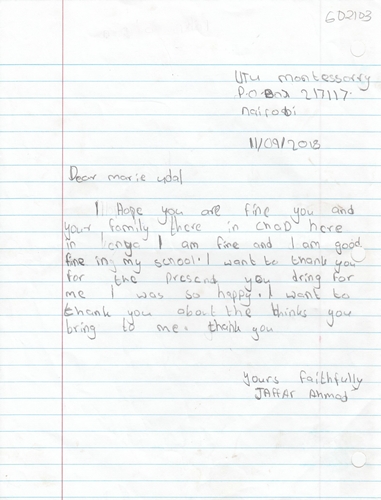 GD2103
UTU montessorry
P.O Box 217117.
nairobi
11/09/2018
Dear marie udal
I Hope you are fine you and
your family there in CHAD here
in kenya I am fine and I am good
fine in my school. I want to thank you
for the Present you dring for
me I was so happy. I want to
thank you about the thinks you
bring to me. thank you
Yours faithfully
JAffAr Ahmad